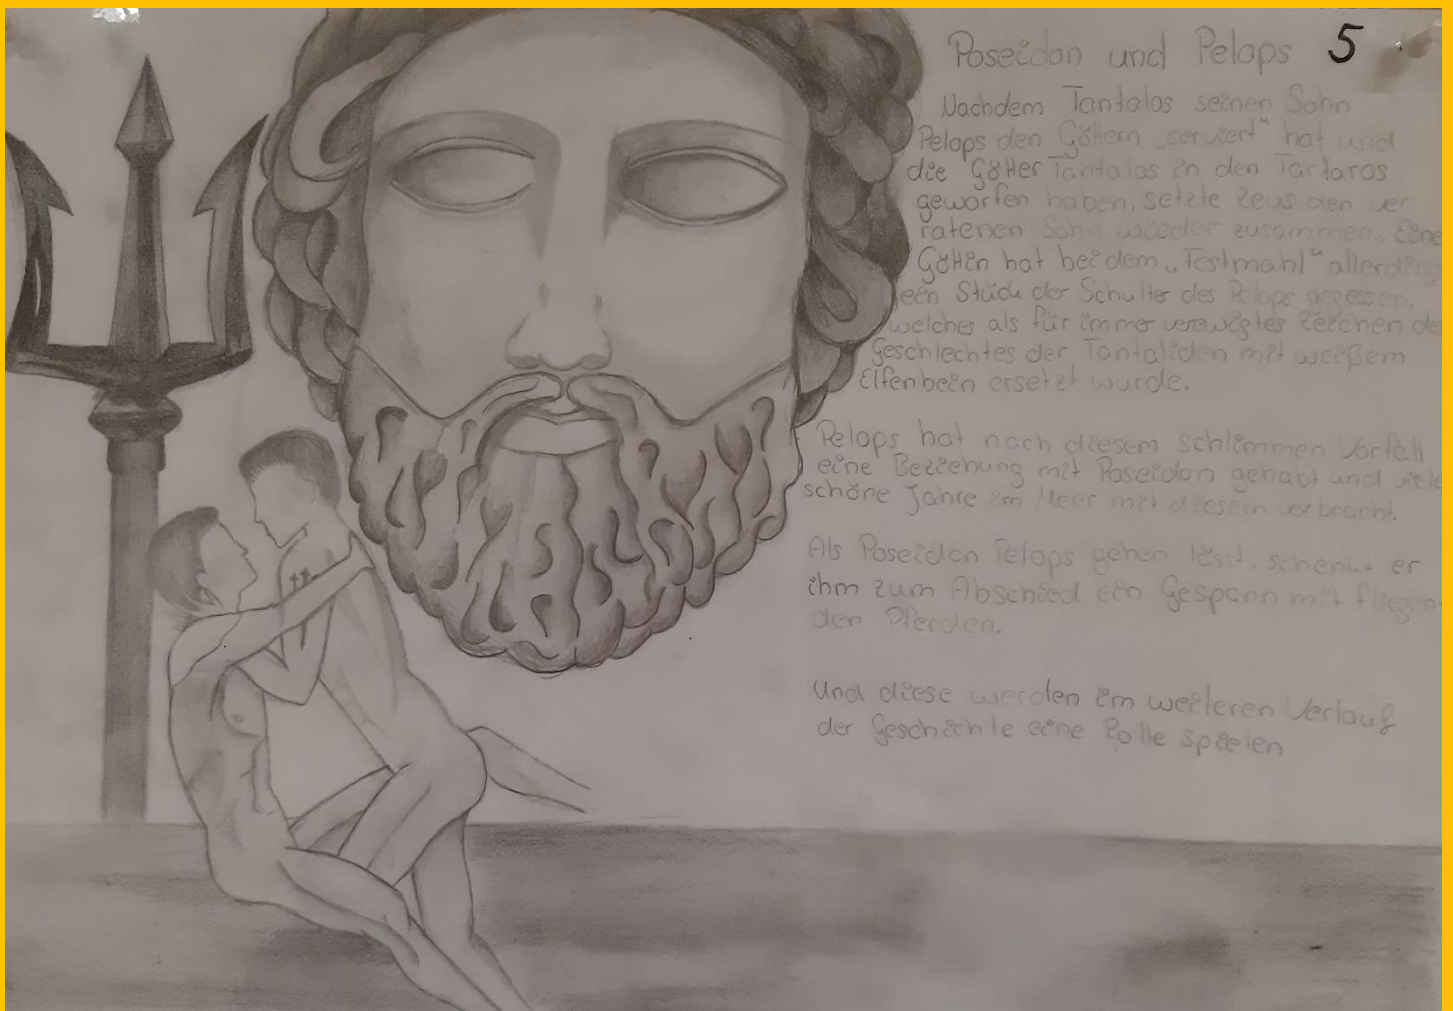 Poseidon und Pelops 5
Nachdem Tantalos seinen Sohn
Pelops den Göttern „serviert“ hat und
die Götter Tantalos in den Tartaros
geworfen haben, setzte Zeus den ver
ratenen Sohn wieder zusammen. Eine
Göttin hat bei dem „Festmahl“ allerdings
ein Stück der Schulter des Pelops gegessen,
welches als für immer verewigtes Zeichen des
Geschlechtes der Tantaliden mit weißem
Elfenbein ersetzt wurde.
Pelops hat nach diesem schlimmen Vorfall
eine Beziehung mit Poseidon gehabt und viele
schöne Jahre im Meer mit diesem verbracht.
Als Poseidon Pelops gehen lässt, schenkt er
ihm zum Abschied ein Gespann mit fliegen-
den Pferden.
Und diese werden im weiteren Verlauf
der Geschichte eine Rolle spielen